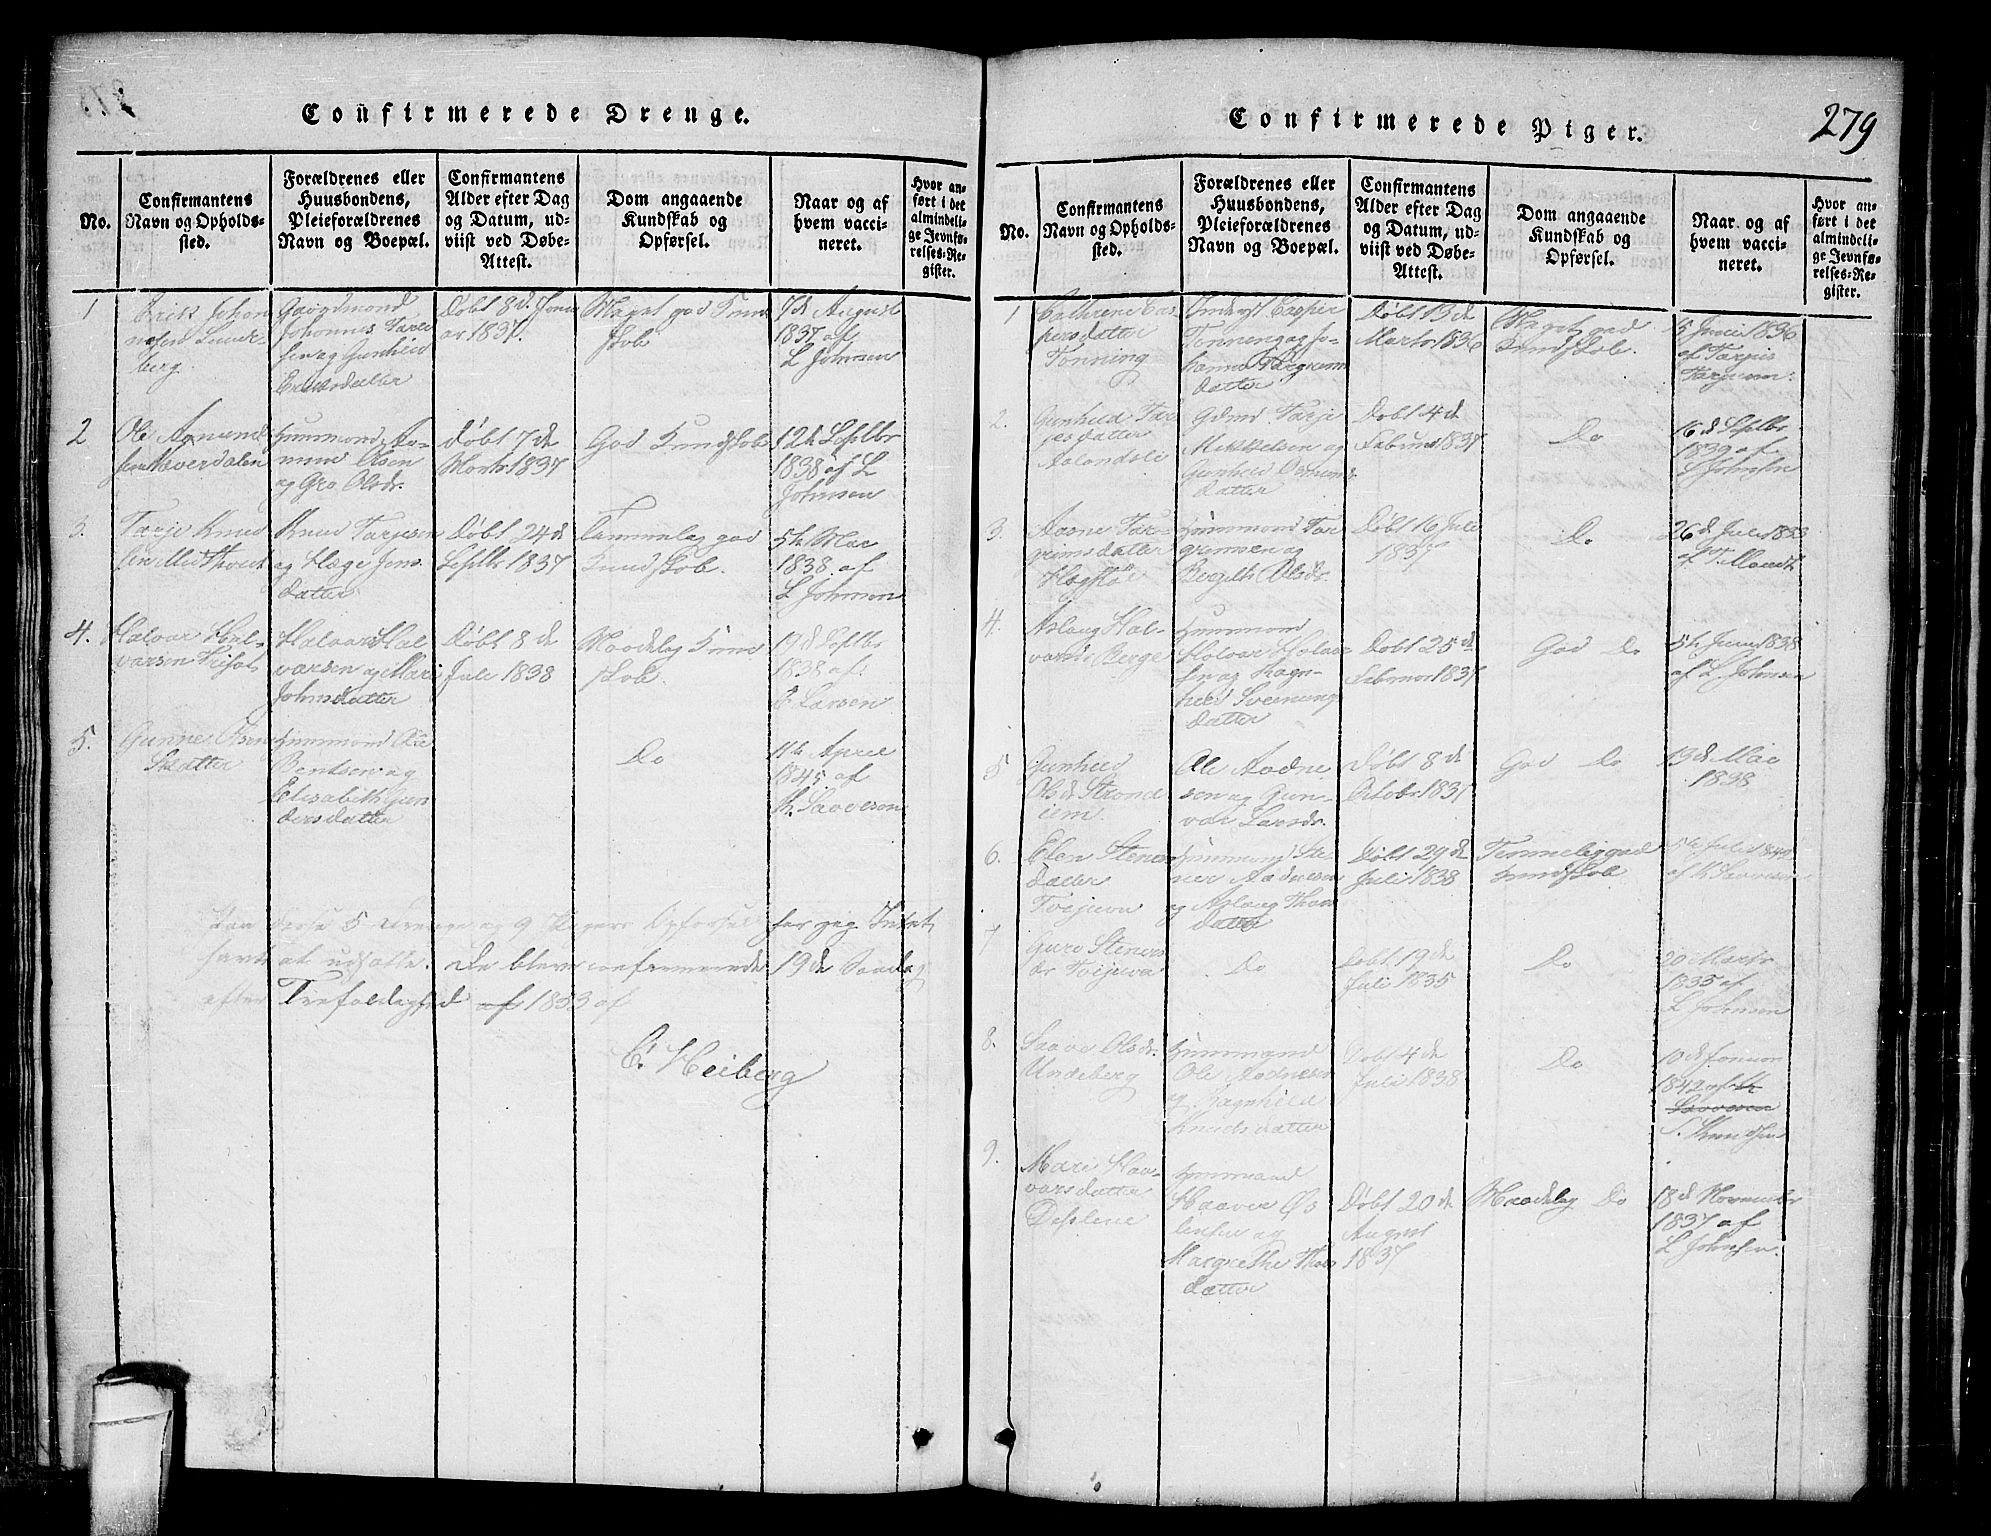 Confirmerede Drenge.
No.
Confirmantens
Navn og Opholds-
sted.
Forældrenes eller
Huusbondens,
Pleieforældrenes
Navn og Boepæl.
Confirmantens
Alder efter Dag
og Datum, ud-
viist ved Døbe-
Attest.
Dom angaaende
Kundskab og
Opførsel.
Naar og af
hvem vacci-
neret.
Hvor an-
ført i det
almindeli-
ge Jevnfø-
relses-Re-
gister.
1
Erik Johan
nesen Lunde-
berg.
Gaardmand
Johannes Tarje
sen og Gunhild
Eriksdatter
Døbt 8 d. Janu
ar 1837.
Meget god Kund
skab
7 d August
1837 af
L Johnsen
2
Ole Aamunds
sen Naverdalen
Huusmand Aa-
mund Olsen
og Gro Olsdr.
Døbt 7 de
Marts 1837
God Kundskab
12te Septbr
1838 af L
Johnsen
3.
Tarje Knud
sen Midthveit
Knud Tarjesen
og Hæge Jons
datter
Døbt 24 de
Septb 1837
Temmelig god
Kundskab.
5te Mai
1838 af
L Johnsen
4.
Halvor Hal-
varsen
Halvor Hal-
varsen og Mari
Johnsdatter
Døbt 8 de
Juli 1838
Maadelig Kund
skab.
19 d Septbr
1838 af
E Larsen
5.
Gunne Olsen
Huusmand Ole
Bentsen og
Elisabeth Gun
dersdatter
Do
11te April
1845 af
Th. Saavesen
disse 5 Drenge og 9 Pigers Opførsel har jeg Intet
havt at udsætte. De bleve confirmerede 19 de Søndag
efter Trefoldighed af 1853 af
C. Heiberg
Confirmerede Piger.
279
No.
Confirmantens
Navn og Opholds-
sted.
Forældrenes eller
Huusbondens,
Pleieforældrenes
Navn og Boepæl.
Confirmantens
Alder efter Dag
og Datum, ud-
viist ved Døbe-
Attest.
Dom angaaende
Kundskab og
Opførsel.
Naar og af
hvem vacci-
neret.
Hvor an-
ført i det
almindeli-
ge Jevnfø-
relses-Re-
gister.
1
Cathrene Cas
persdatter
Tonning
Casper
Tonning og Jo-
hanne Targrims
datter
Døbt 13 de
Marts 1836
Meget god
Kundskab.
5 Juni 1836
af Tarjus
Tarjesen
2.
Gunhild Tar
jesdatter
Aalandslie
Gdmd. Tarje
Mikkelsen og
Gunhild Osmunds
datter
Døbt 4 de
Februar 1837
Do
16 d Septbr
1839 af
L Johnsen
3.
Aasne Tar-
grimsdatter
Huusmand Tar
grimsen og
Bergith Olsdr.
Døbt 16 Juli
1837
Do
26 d Juli 1838
af T. Mandt
4.
Aslaug Hal-
vorsdr Berge
Huusmand
Halvor
sen og Ragn-
hild Sveinungs
datter
Døbt 25 de
Februar 1837
God Do
5te Juni 1838
af L Johnsen
5
Gunhild
Ols d Strond
iem.
Ole Aadne
sen og Gun-
vor Larsdr.
Døbt 8 de
October 1837
God Do
13 d Mai
1838
6.
Elen Steners
datter
Tveituva
Huusmand Ste
ner Aadnesen
og Aslaug Thors
datter
Døbt 29 de
Juli 1838
Temmelig god
Kundskab
5te Juli
af Th Saavesen
7
Guro Steners
dr Tveituva
Do
Døbt 19 de
Juli 1835
Do
20 Marts
1835 af
L Johnsen
8.
Saave Olsdr.
Undeberg
Huusmand
Ole Aadnesen
og Ragnhild
Knudsdatter
Døbt 4 de
Juli 1838
Do
10 d Januar
1842 af Th
Saavesen
S. Knudsen
9.
Mari Haa-
varsdatter
Huusmand
Haaver Øs
tensen og
Margrethe Thors
datter
Døbt 20 de
August
1837
Maadelig Do
18 d November
1837 af
L Johnsen.